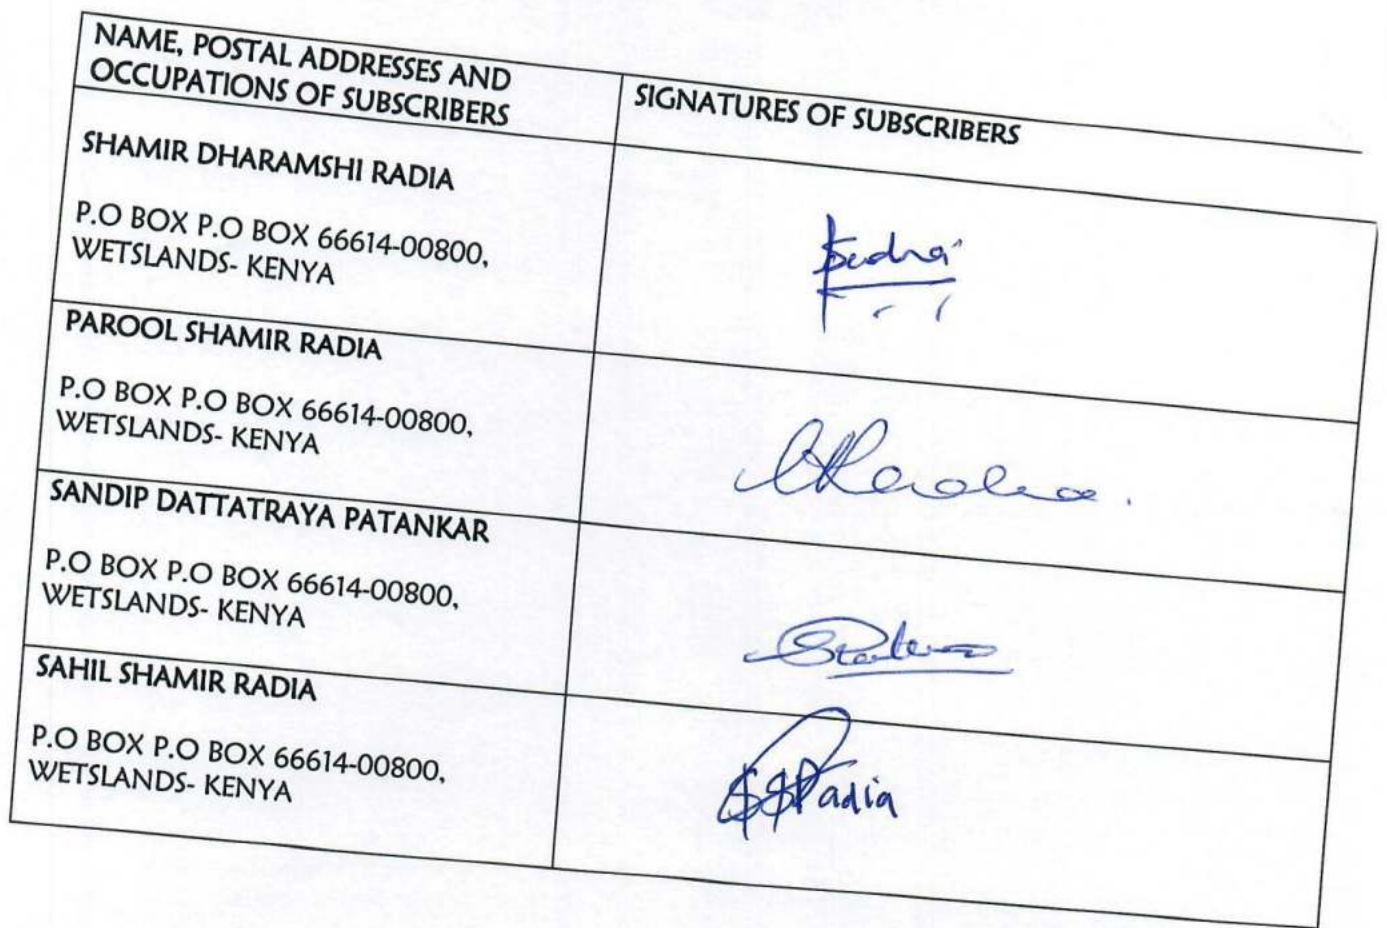 NAME, POSTAL ADDRESSES AND
OCCUPATIONS OF SUBSCRIBERS
SIGNATURES OF SUBSCRIBERS
SHAMIR DHARAMSHI RADIA
P.O BOX P.O BOX 66614-00800,
WETSLANDS- KENYA
PAROOL SHAMIR RADIA
P.O BOX P.O BOX 66614-00800,
WETSLANDS- KENYA
SANDIP DATTATRAYA PATANKAR
P.O BOX P.O BOX 66614-00800,
WETSLANDS- KENYA
SAHIL SHAMIR RADIA
P.O BOX P.O BOX 66614-00800,
WETSLANDS- KENYA
SSRadia